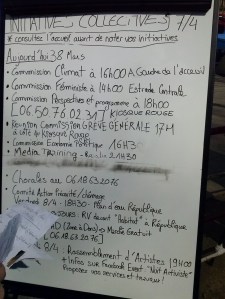 INITIATIVES COLLECTIVES 7/4
* consultez l'accueil avant de noter vos initiatives
Aujourd'hui 38 Mars
- Commission Climat à 16h00 A Gauche de l'accueil
- Commission Féministe à 14h00 Estrade Centrale
- Commission Perspectives et programme à 18h00
[06.50.76.02.31] KIOSQUE ROUGE
- Réunion Commission GRÈVE GÉNÉRALE 17H
à côté du Kiosque Rouge
- Commission Economie Politique 16H3
- Media Training 21H30
- Chorales au 06.18.63.20.76
Comité Action précarité/chômage
Vendredi 8/4 - 18H30 - Place de la République
RV devant "Habitat" à République
Marché Gratuit
[06.18.63.20.76]
8/4 - Rassemblement d'Artistes 19H00
+ Infos sur Facebook Event "Nuit Artiviste"
Proposez vos services et travaux!